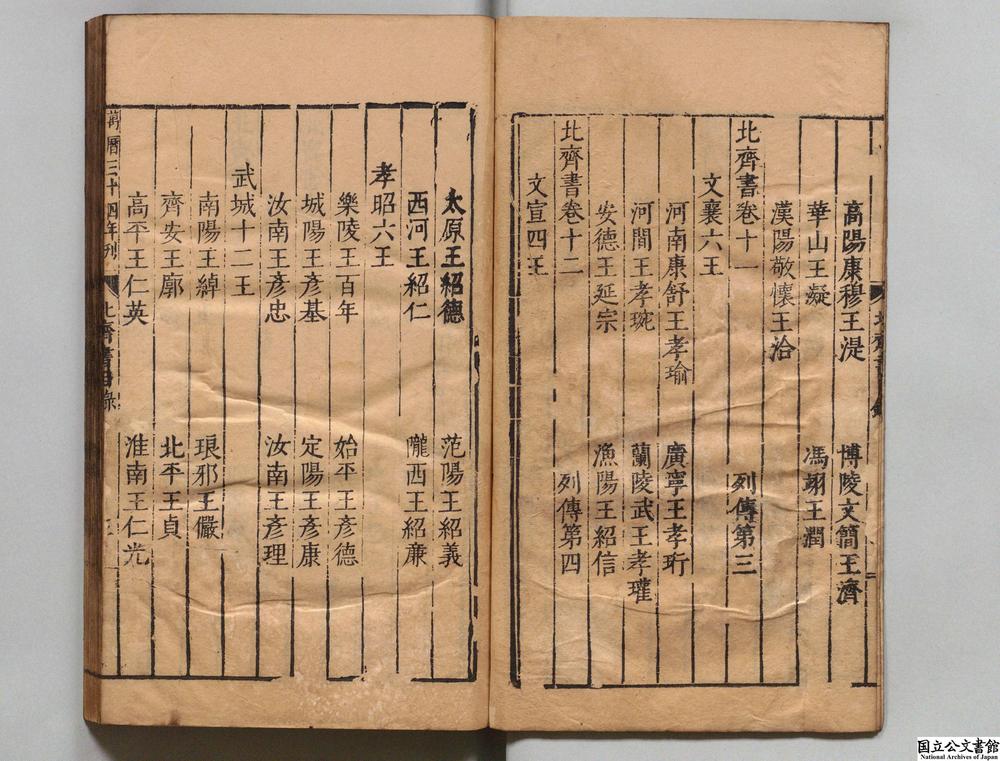 高陽康穆王湜 博陵文簡王濟
華山王凝 馮翊王潤
漢陽敬懷王洽
北齊書卷十一 列傳第三
文襄六王
河南康舒王孝瑜 廣寧王孝珩
河間王孝琬 蘭陵武王孝瓘
安德王延宗 漁陽王紹信
北齊書卷十二 列傳第四
文宣四王
太原王紹德 范陽王紹義
西河王紹仁 隴西王紹廉
孝昭六王
樂陵王百年 始平王彥德
城陽王彥基 定陽王彥康
汝南王彥忠 汝南王彥理
武城十二王
南陽王綽 琅邪王儼
齊安王廓 北平王貞
高平王仁英 淮南王仁光
萬曆三十四年刊 北齊書目錄 三
国立公文書館
National Archives of Japan